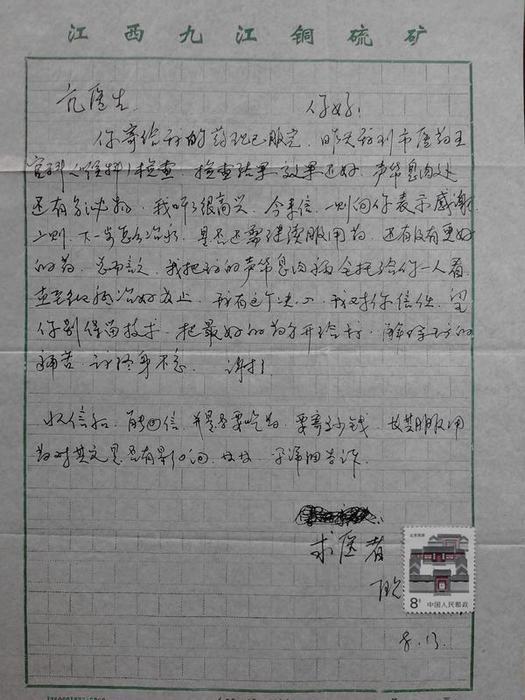 江西九江铜硫矿
亢医生 你好！
你寄给我的药现已服完，昨天我到市医药
检查，检查结果效果还好，声带息肉处
还有分泌物，我听了很高兴，今来信，一则向你表示感谢，
二则，下一步怎么治疗，是否还需继续服用药，还有没有更好
的药，总而言之，我把我的声带息肉病全托给你一人看，
直至把病治好为止，我有这个决心，我对你信任，望
你别保留技术，把最好的药方开给我，解除我的
痛苦，我终身不忘，谢谢！
收信后，能回信，并是否要吃药，要寄多少钱，
药对其它是否有影响，望详细告诉。
求医者
8.13
北京民居
8分 中国人民邮政